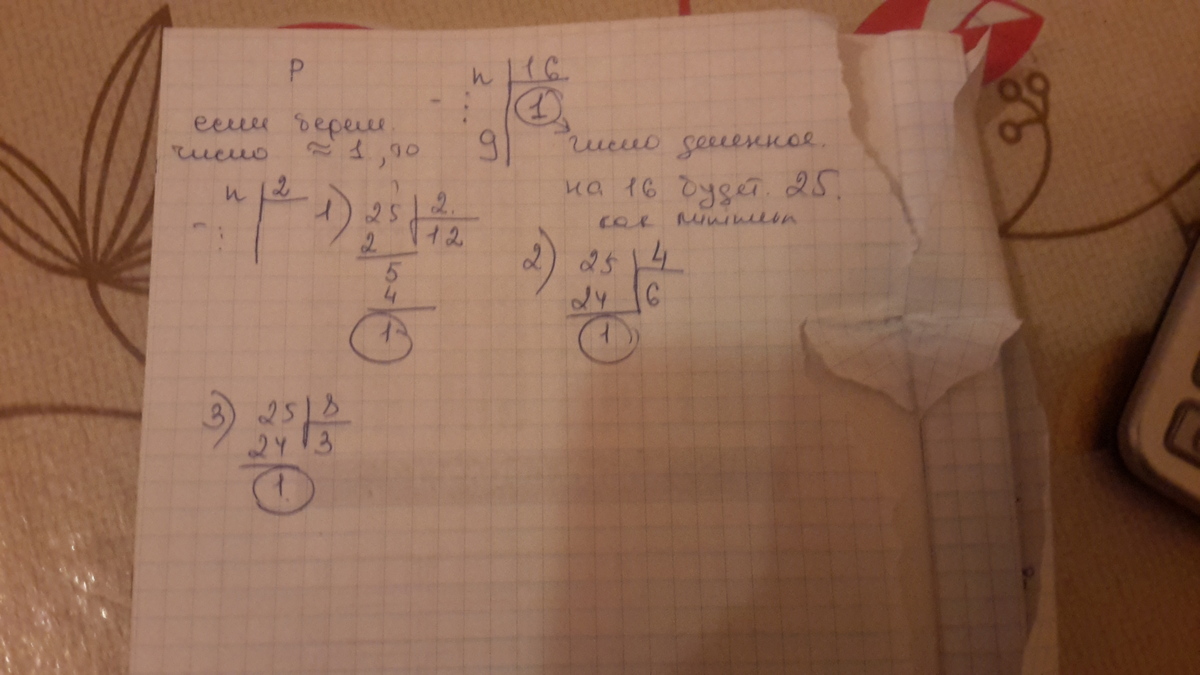 Р
n | 16
- ⋮ 1
9
если берем
число ≈ 1, то
число деленное.
на 16 будет. 25.
как минимум
n | 2
- ⋮
1) 25 | 2
2 | 12
5
4
1
2) 25 | 4
24 | 6
1
3) 25 | 8
24 | 3
1